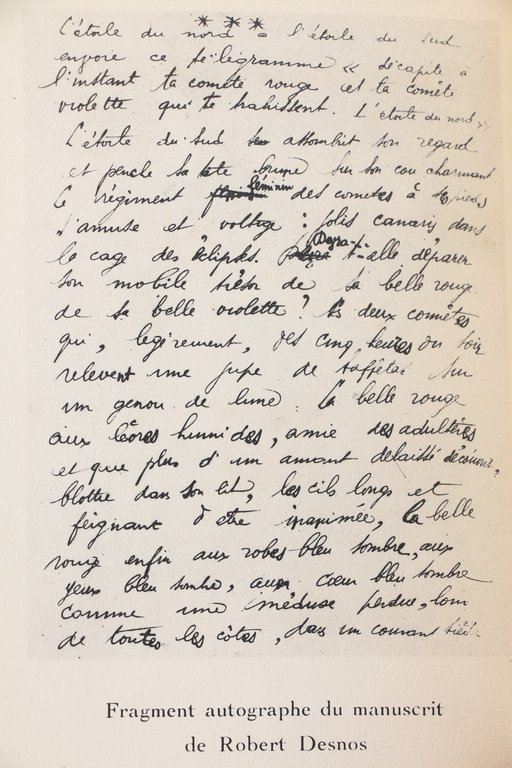 * * *
L'étoile du nord à l'étoile du sud
envoie ce télégramme « Décapite à
l'instant ta comète rouge et ta comète
violette qui te trahissent. L'étoile du nord »
L'étoile du sud assombrit son regard
et penche sa tête brune sur son cou charmant
Le régiment féminin des comètes à ses pieds
s'amuse et voltige : jolis canaris dans
la cage des éclipses. Devra-t-elle déparer
son mobile trésor de sa belle rouge
de sa belle violette ? Ces deux comètes
qui, légèrement, dès cinq heures du soir
relèvent une jupe de taffetas sur
un genou de lune. La belle rouge
aux lèvres humides, amie des adultères
et que plus d'un amant délaissé découvrit,
blottie dans son lit, les cils longs et
feignant d'être inanimée, la belle
rouge enfin aux robes bleu sombre, aux
yeux bleu sombre, au cœur bleu sombre
comme une méduse perdue, loin
de toutes les côtes, dans un courant tiède
Fragment autographe du manuscrit
de Robert Desnos